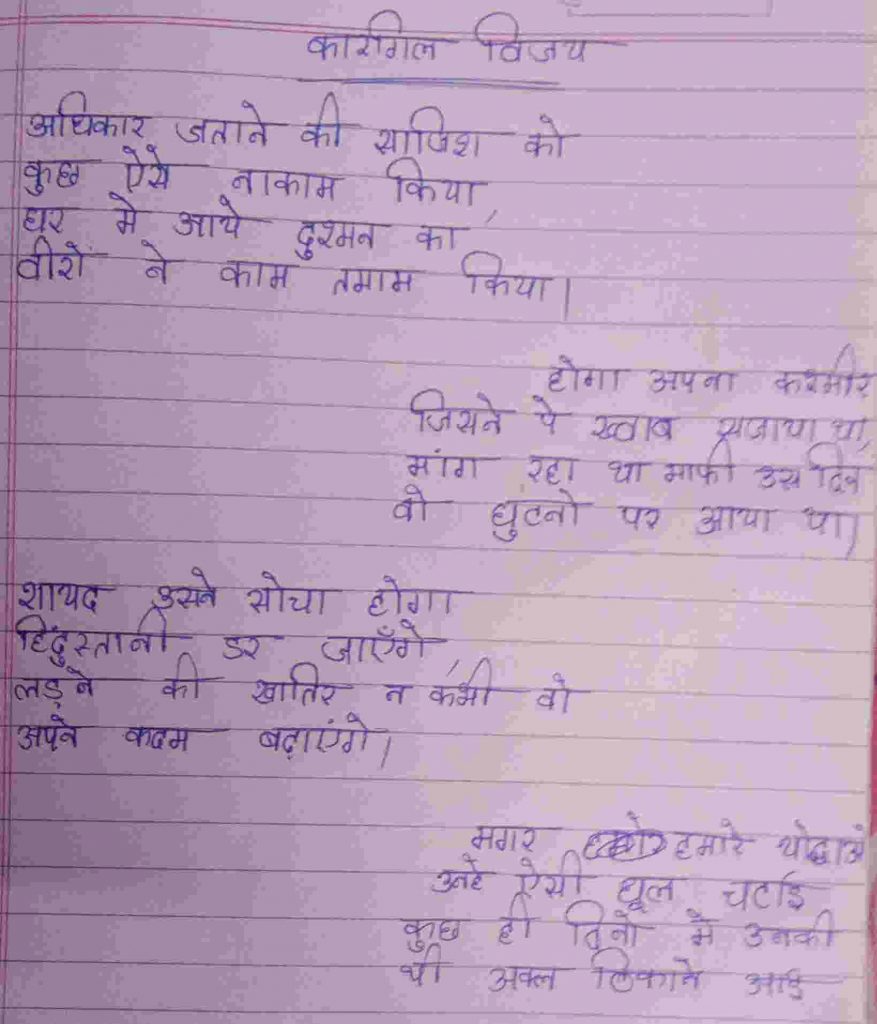 कारगिल विजय
अधिकार जताने की साजिश को
कुछ ऐसे नाकाम किया,
घर मे आये दुश्मन का
वीरों ने काम तमाम किया।
होगा अपना कश्मीर
जिसने ये ख्वाब सजाया था,
मांग रहा था माफी उस दिन
वो घुटनो पर आया था।
शायद उसने सोचा होगा
हिंदुस्तानी डर जाएँगे,
लड़ने की खातिर न कभी वो
अपने कदम बढ़ाएंगे।
मगर हमारे योद्धाओ
उन्हे ऐसी धूल चटाई
कुछ ही दिनो मे उनकी
थी अक्ल ठिकाने आई